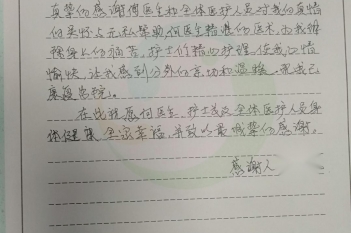 真挚的感谢傅医生和全体医护人员对我的真情
的关怀与无私帮助,何医生精湛的医术,为我解
除身心的病苦,护士们精心护理,使我心情
愉快,让我感到分外的亲切和温暖,现我已
康复出院。
在此我愿何医生、护士长及全体医护人员身
体健康 全家幸福,并致以最诚挚的感谢。
感谢人